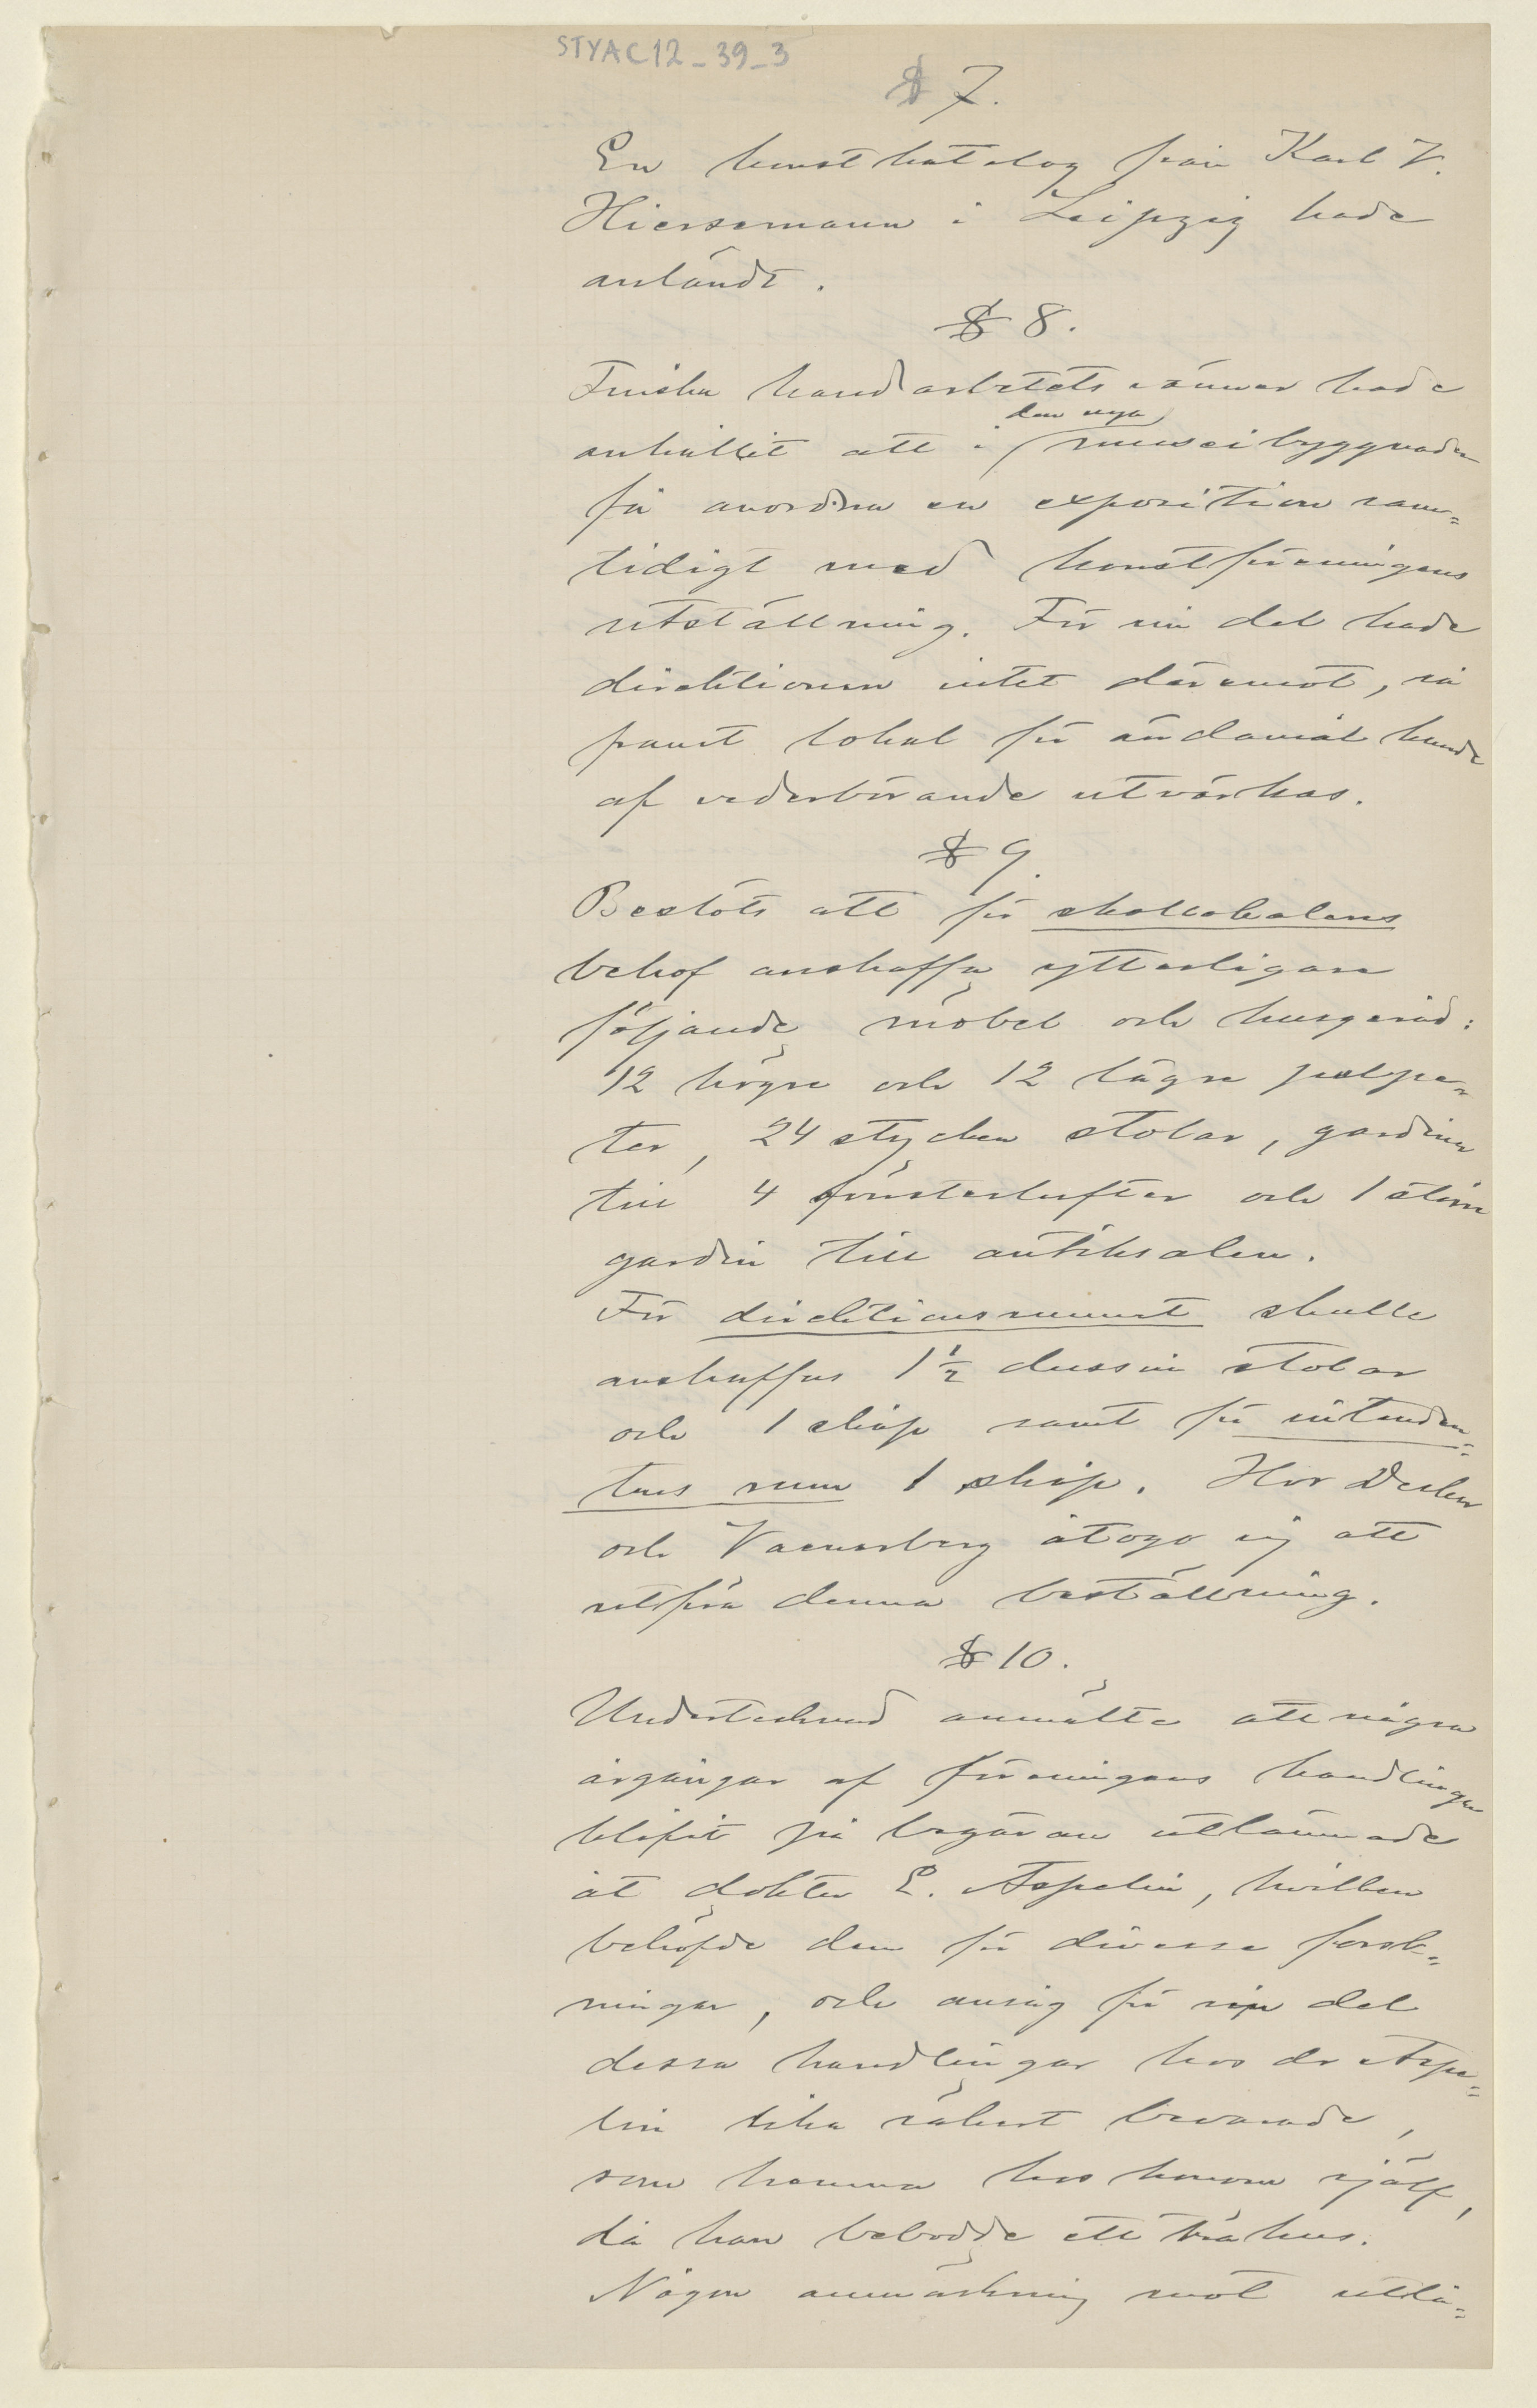 STYAC12_39_3
§ 7.
En konstkatalog från Karl V.
Hiersemann i Leipzig hade
anländt.
§ 8.
Finska handarbetets vänner hade
anhållit att i den nya museibyggnaden
få anordna en exposition sam=
tidigt med konstföreningens
utställning. För sin del hade
direktionen intet däremot, så
framt lokal för ändamål kunde
af vederbörande utvärkas.
§ 9.
Beslöts att för skollokalens
behof anskaffa ytterligare
följande möbel och husgeråd:
12 högre och 12 lägre pulpe=
ter, 24 stycken stolar, gardiner
till 4 fönsterlufter och 1 större
gardin till antiksalen.
För direktionsrummet skulle
anskaffas 1½ dussin stolar
och 1 skåp samt för intenden=
tens rum 1 skåp. Hrr Decker
och Vaenerberg åtogo sig att
utföra denna beställning.
§ 10.
Undertecknad anmälte att några
årgångar af föreningens handlingar
blifit på begäran utlämnade
åt doktor E. Aspelin, hvilken
behöfde dem för diverse forsk=
ningar, och ansåg för sin del
dessa handlingar hos dr Aspe=
lin lika säkert bevarade,
som hemma hos honom själf,
då han bebodde ett trähus.
Någon anmärkning mot utlå=